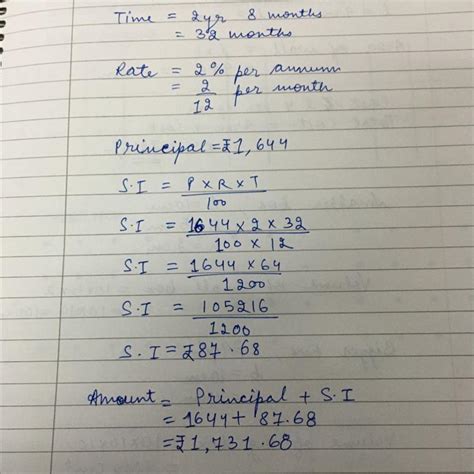 Time = 2yr 8 months
= 32 months
Rate = 2% per annum
= 2/12 per month
Principal = ₹1,644
S.I = P × R × T
100
S.I = 1644 × 2 × 32
100 × 12
S.I = 1644 × 64
1200
S.I = 105216
1200
S.I = ₹87.68
Amount = Principal + S.I
= 1644 + 87.68
= ₹1,731.68